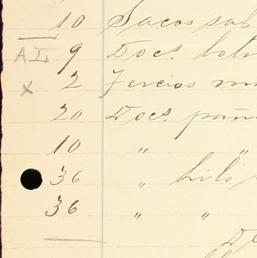 10 Sacos sal
A I. 9 Doc.s bot
x 2 Tercios m
20 Doc.s pañ
10 "
36 " hilo
36 " "
D